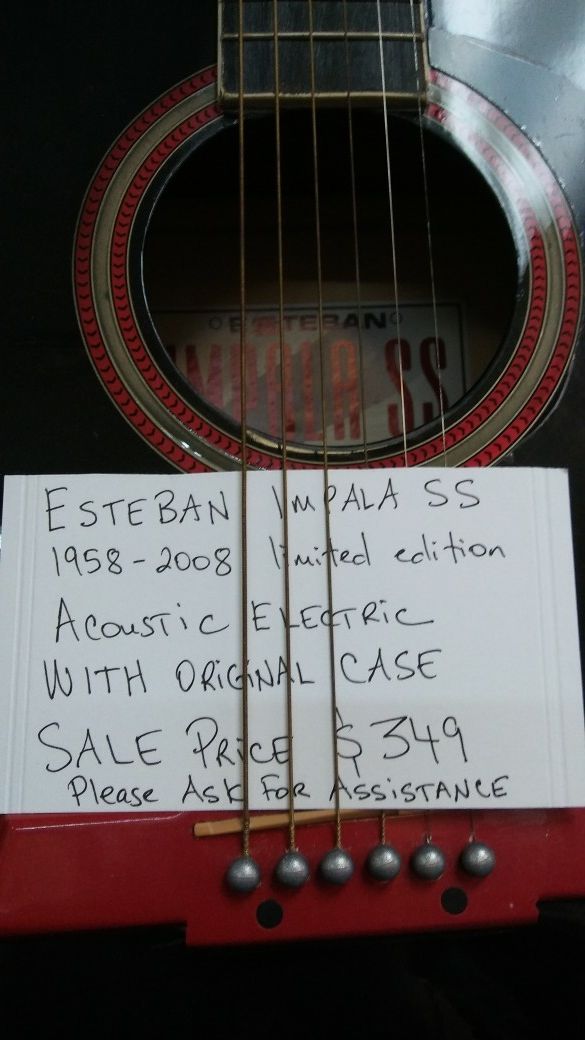 ESTEBAN
IMPALA SS
ESTEBAN IMPALA SS
1958-2008 limited edition
ACOUSTIC ELECTRIC
WITH ORIGINAL CASE
SALE PRICE $349
Please ASK FOR ASSISTANCE